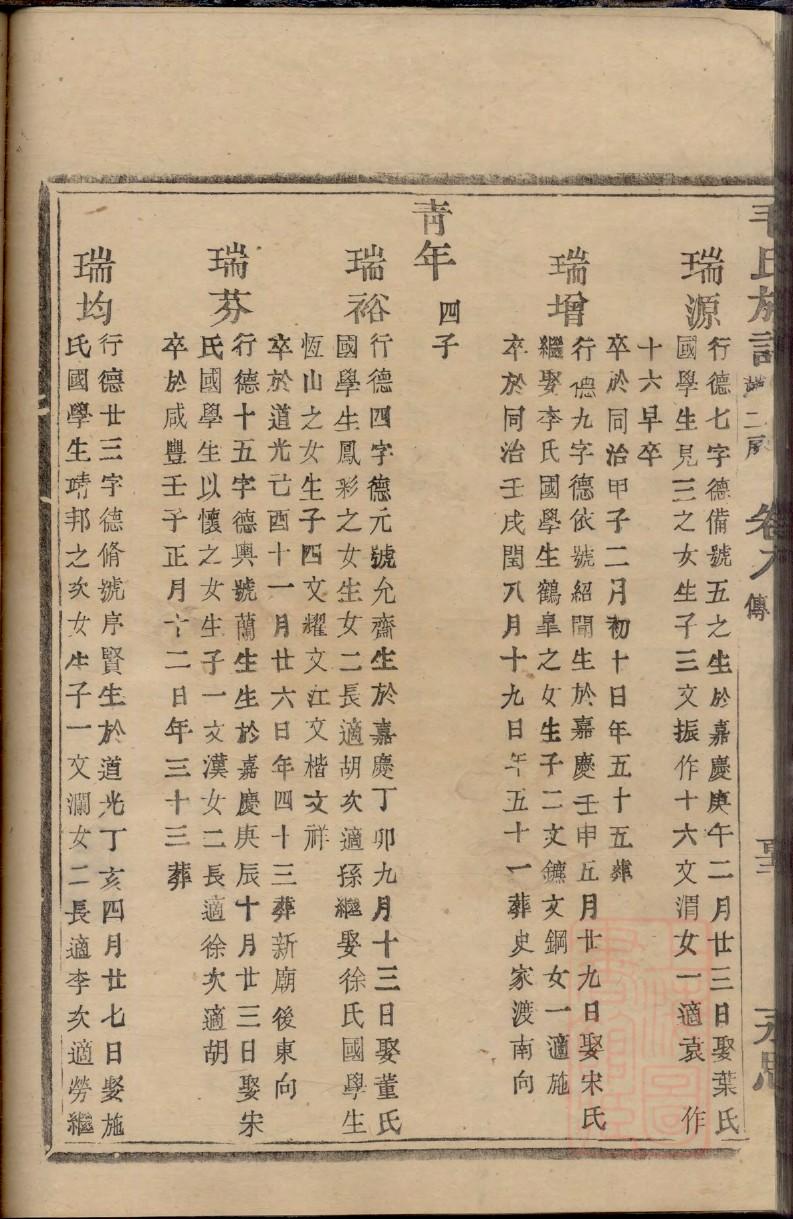 毛氏族譜 二房 卷九 傳 永思
瑞源
行德七字德備號五之生於嘉慶庚午二月廿三日娶葉氏
國學生見三之女生子三文振作十六文渭女一適袁 作
十六早卒
卒於同治甲子二月初十日年五十五葬
瑞增
行德九字德依號紹聞生於嘉慶壬申五月廿九日娶宋氏
繼娶李氏國學生鶴臯之女生子二文鑣文鋼女一適施
卒於同治壬戌閏八月十九日年五十一葬史家渡南向
青年 四子
瑞裕
行德四字德元號允齋生於嘉慶丁卯九月十三日娶董氏
國學生鳳彩之女生女二長適胡次適孫繼娶徐氏國學生
恆山之女生子四文耀文江文楷文祥
卒於道光己酉十一月廿六日年四十三葬新廟後東向
瑞芬
行德十五字德輿號蘭生生於嘉慶庚辰十月廿三日娶宋
氏國學生以懷之女生子一文漢女二長適徐次適胡
卒於咸豐壬子正月十二日年三十三葬
瑞均
行德廿三字德脩號序賢生於道光丁亥四月廿七日娶施
氏國學生靖邦之次女生子一文瀾女二長適李次適勞繼